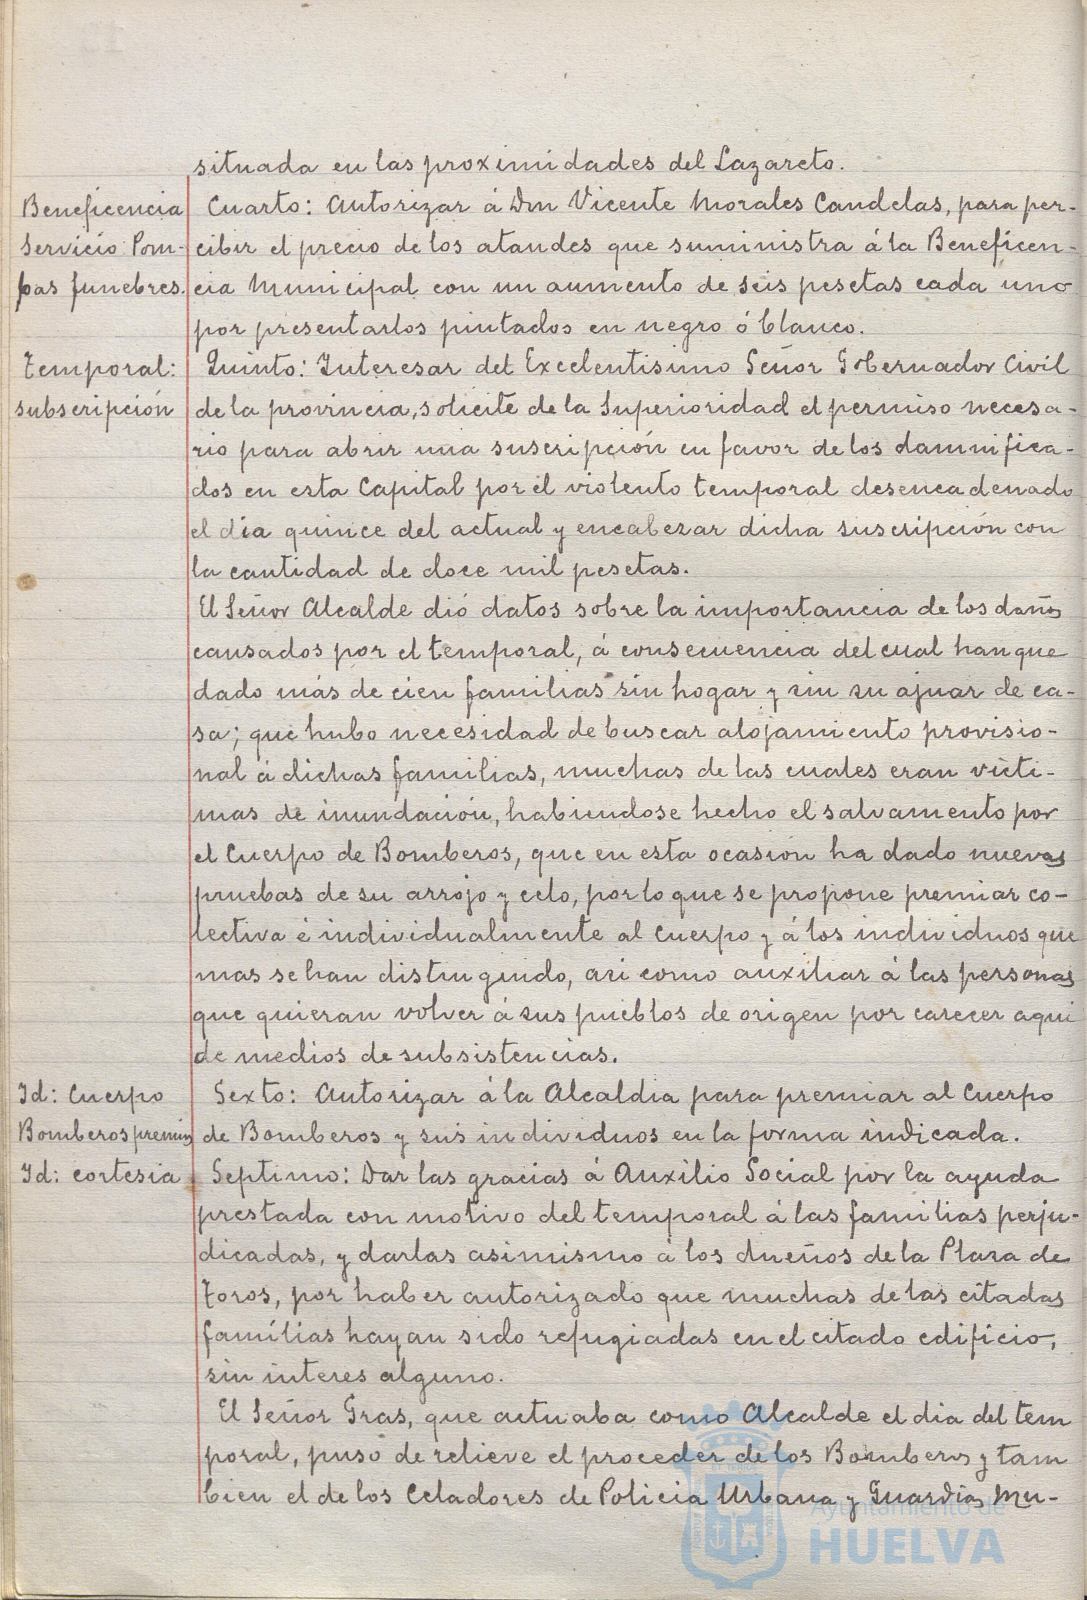 situada en las proximidades del Lazareto.
Beneficencia
Servicio Pom-
pas funebres.
Cuarto: Autorizar á Don Vicente Morales Candelas, para per-
cibir el precio de los ataudes que suministra á la Beneficen-
cia Municipal con un aumento de seis pesetas cada uno
por presentarlos pintados en negro ó blanco.
Temporal:
subscripción
Quinto: Interesar del Excelentisimo Señor Gobernador Civil
de la provincia, solicite de la Superioridad el permiso necesa-
rio para abrir una suscripción en favor de los damnifica-
dos en esta Capital por el violento temporal desencadenado
el dia quince del actual y encabezar dicha suscripción con
la cantidad de doce mil pesetas.
El Señor Alcalde dió datos sobre la importancia de los daños
causados por el temporal, á consecuencia del cual han que
dado más de cien familias sin hogar y sin su ajuar de ca-
sa; que hubo necesidad de buscar alojamiento provisio-
nal á dichas familias, muchas de las cuales eran vícti-
mas de inundación, habiendose hecho el salvamento por
el Cuerpo de Bomberos, que en esta ocasión ha dado nuevas
pruebas de su arrojo y celo, por lo que se propone premiar co-
lectiva é individualmente al Cuerpo y á los individuos que
mas se han distinguido, asi como auxiliar á las personas
que quieran volver á sus pueblos de origen por carecer aqui
de medios de subsistencias.
Id: Cuerpo
Bomberos premios
Sexto: Autorizar á la Alcaldia para premiar al Cuerpo
de Bomberos y sus individuos en la forma indicada.
Id: cortesia
Septimo: Dar las gracias á Auxilio Social por la ayuda
prestada con motivo del temporal á las familias perju-
dicadas, y darlas asimismo á los dueños de la Plaza de
Toros, por haber autorizado que muchas de las citadas
famílias hayan sido refugiadas en el citado edificio,
sin interes alguno.
El Señor Gras, que actuaba como Alcalde el dia del tem
poral, puso de relieve el proceder de los Bomberos y tam
bien el de los Celadores de Policia Urbana y Guardia Mu-
Ayuntamiento de
HUELVA